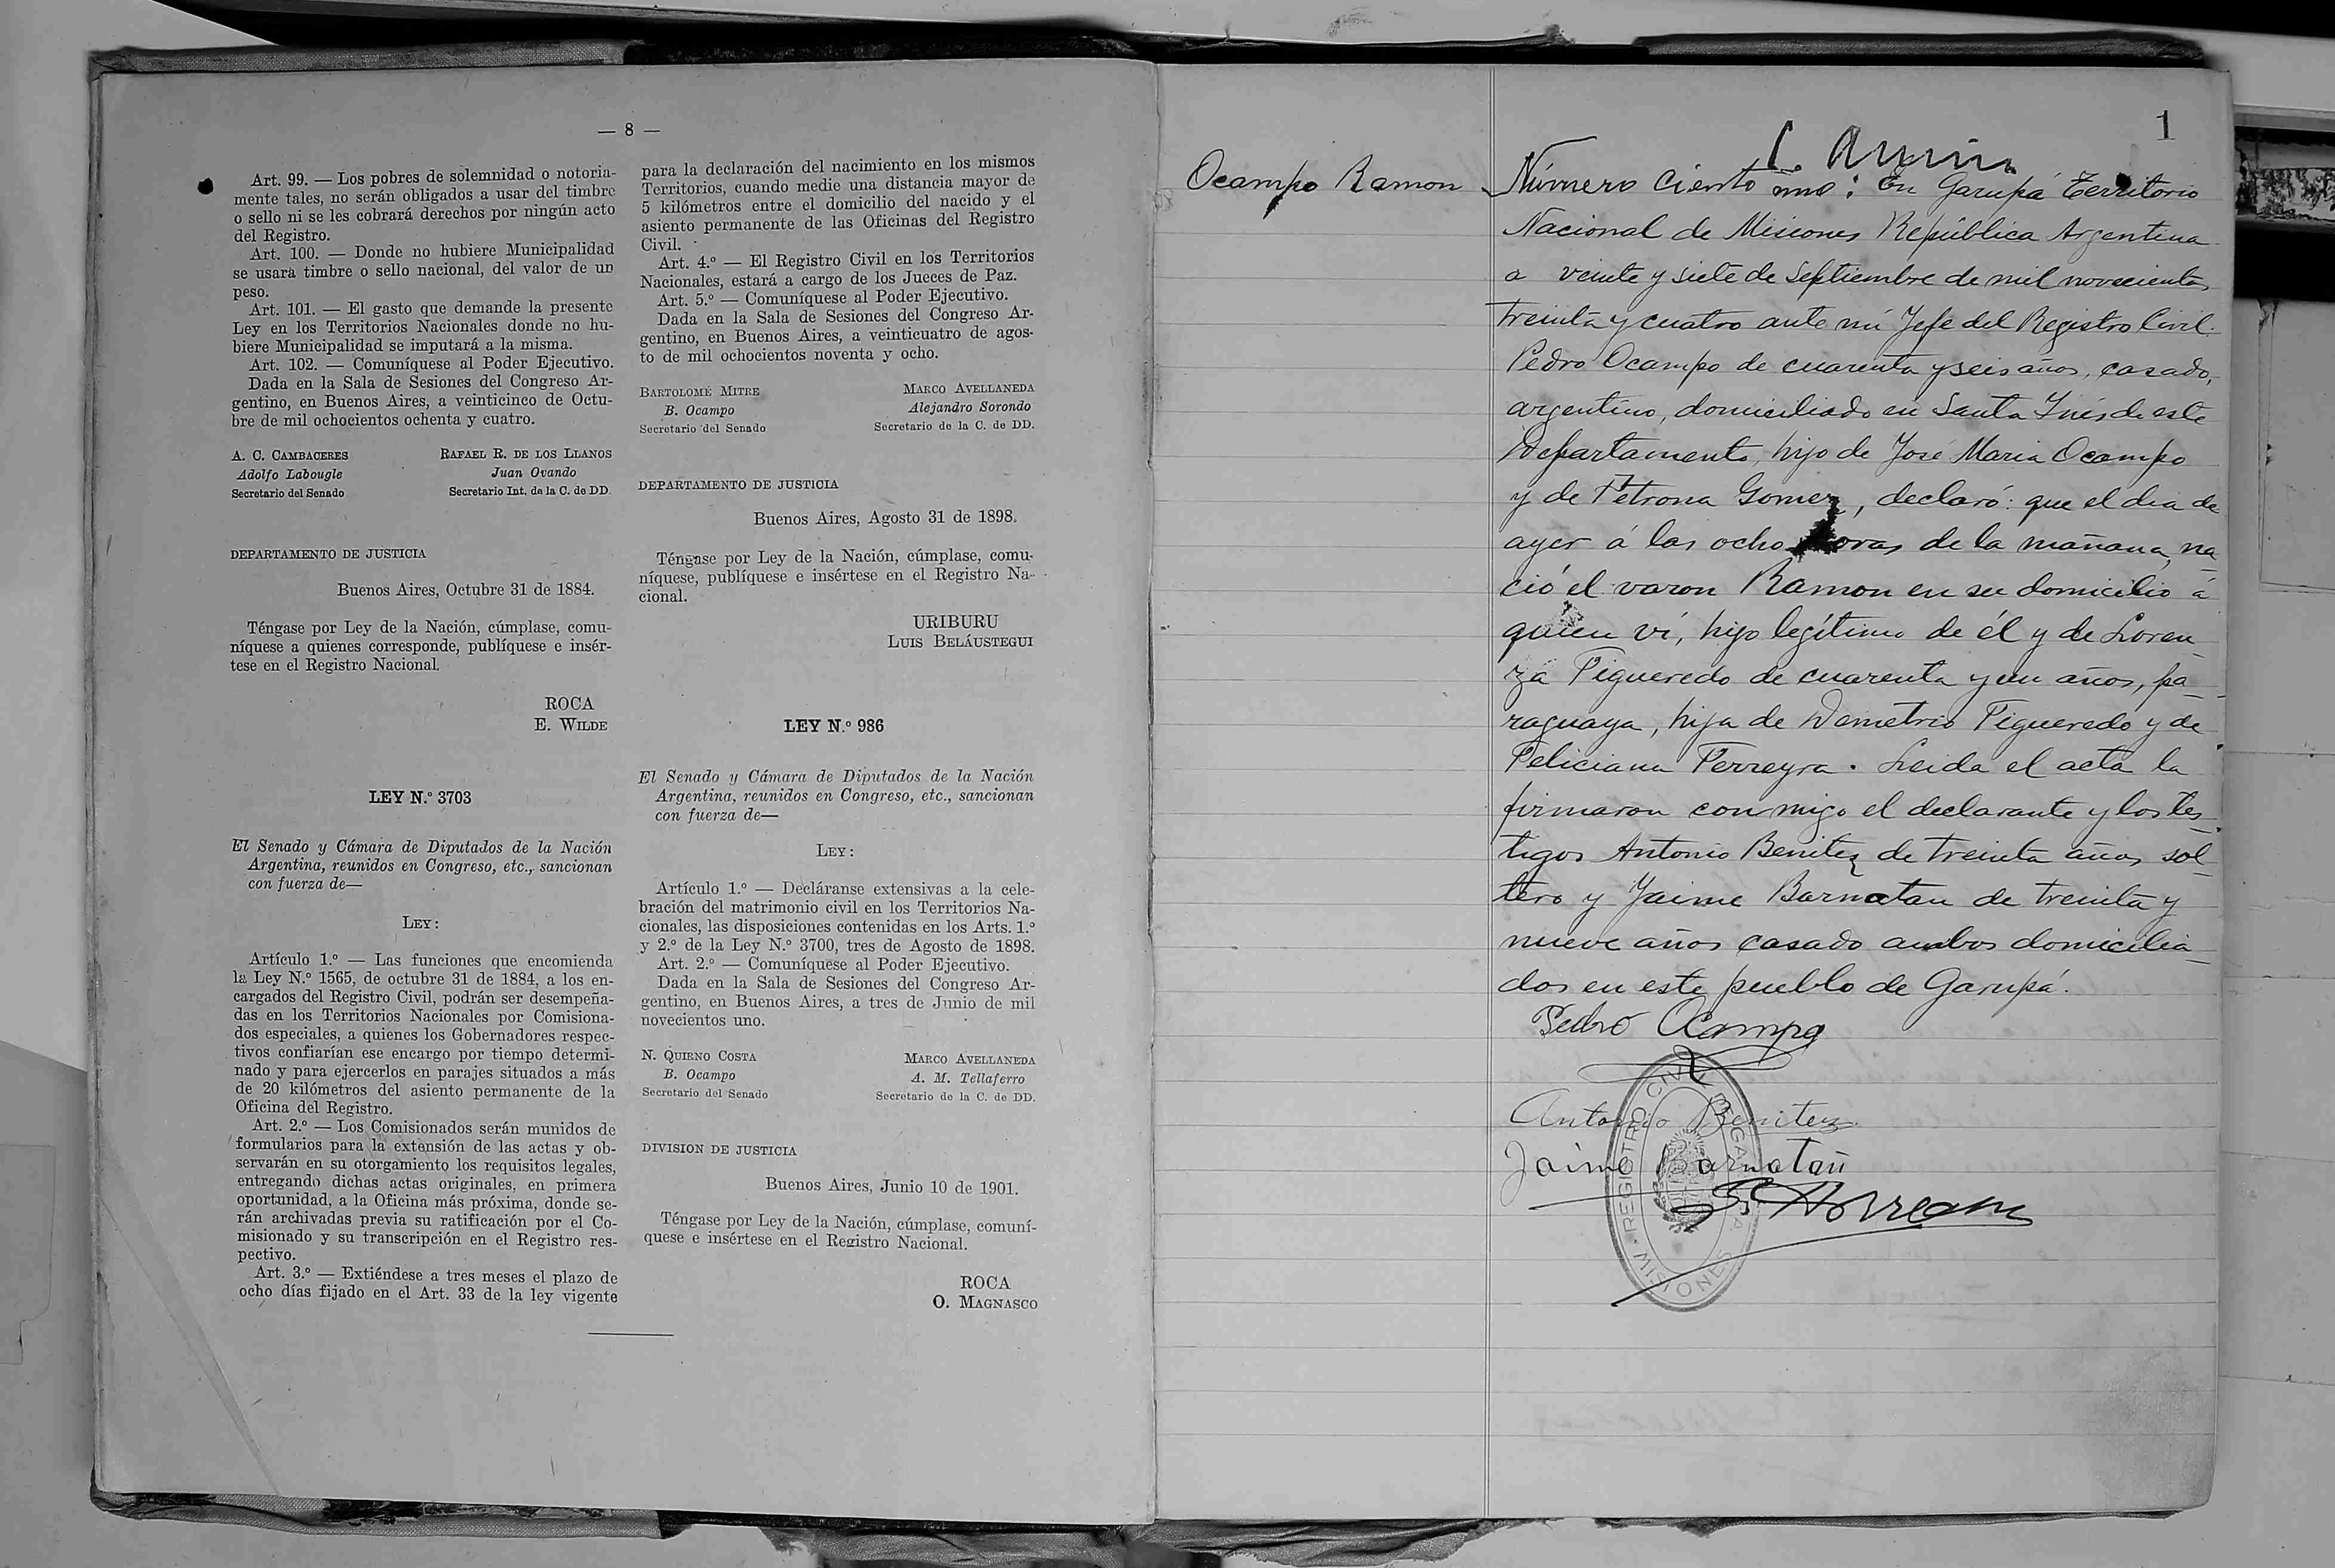 — 8 —
Art. 99. — Los pobres de solemnidad o notoria-
mente tales, no serán obligados a usar del timbre
o sello ni se les cobrará derechos por ningún acto
del Registro.
Art. 100. — Donde no hubiere Municipalidad
se usará timbre o sello nacional, del valor de un
peso.
Art. 101. — El gasto que demande la presente
Ley en los Territorios Nacionales donde no hu-
biere Municipalidad se imputará a la misma.
Art. 102. — Comuníquese al Poder Ejecutivo.
Dada en la Sala de Sesiones del Congreso Ar-
gentino, en Buenos Aires, a veinticinco de Octu-
bre de mil ochocientos ochenta y cuatro.
A. C. CAMBACERES RAFAEL R. DE LOS LLANOS
Adolfo Labougle Juan Ovando
Secretario del Senado Secretario Int. de la C. de DD.
DEPARTAMENTO DE JUSTICIA
Buenos Aires, Octubre 31 de 1884.
Téngase por Ley de la Nación, cúmplase, comu-
níquese a quienes corresponde, publíquese e insér-
tese en el Registro Nacional.
ROCA
E. WILDE
LEY N.º 3703
El Senado y Cámara de Diputados de la Nación
Argentina, reunidos en Congreso, etc., sancionan
con fuerza de—
LEY:
Artículo 1.º — Las funciones que encomienda
la Ley N.º 1565, de octubre 31 de 1884, a los en-
cargados del Registro Civil, podrán ser desempeña-
das en los Territorios Nacionales por Comisiona-
dos especiales, a quienes los Gobernadores respec-
tivos confiarían ese encargo por tiempo determi-
nado y para ejercerlos en parajes situados a más
de 20 kilómetros del asiento permanente de la
Oficina del Registro.
Art. 2.º — Los Comisionados serán munidos de
formularios para la extensión de las actas y ob-
servarán en su otorgamiento los requisitos legales,
entregando dichas actas originales, en primera
oportunidad, a la Oficina más próxima, donde se-
rán archivadas previa su ratificación por el Co-
misionado y su transcripción en el Registro res-
pectivo.
Art. 3.º — Extiéndese a tres meses el plazo de
ocho días fijado en el Art. 33 de la ley vigente
para la declaración del nacimiento en los mismos
Territorios, cuando medie una distancia mayor de
5 kilómetros entre el domicilio del nacido y el
asiento permanente de las Oficinas del Registro
Civil.
Art. 4.º — El Registro Civil en los Territorios
Nacionales, estará a cargo de los Jueces de Paz.
Art. 5.º — Comuníquese al Poder Ejecutivo.
Dada en la Sala de Sesiones del Congreso Ar-
gentino, en Buenos Aires, a veinticuatro de agos-
to de mil ochocientos noventa y ocho.
BARTOLOMÉ MITRE MARCO AVELLANEDA
B. Ocampo Alejandro Sorondo
Secretario del Senado Secretario de la C. de DD.
DEPARTAMENTO DE JUSTICIA
Buenos Aires, Agosto 31 de 1898.
Téngase por Ley de la Nación, cúmplase, comu-
níquese, publíquese e insértese en el Registro Na-
cional.
URIBURU
LUIS BELÁUSTEGUI
LEY N.º 986
El Senado y Cámara de Diputados de la Nación
Argentina, reunidos en Congreso, etc., sancionan
con fuerza de—
LEY:
Artículo 1.º — Decláranse extensivas a la cele-
bración del matrimonio civil en los Territorios Na-
cionales, las disposiciones contenidas en los Arts. 1.º
y 2.º de la Ley N.º 3700, tres de Agosto de 1898.
Art. 2.º — Comuníquese al Poder Ejecutivo.
Dada en la Sala de Sesiones del Congreso Ar-
gentino, en Buenos Aires, a tres de Junio de mil
novecientos uno.
N. QUIRNO COSTA MARCO AVELLANEDA
B. Ocampo A. M. Tallaferro
Secretario del Senado Secretario de la C. de DD.
DIVISION DE JUSTICIA
Buenos Aires, Junio 10 de 1901.
Téngase por Ley de la Nación, cúmplase, comuní-
quese e insértese en el Registro Nacional.
ROCA
O. MAGNASCO
1
Ocampo Ramon
Número ciento uno: En Garupá Territorio
Nacional de Misiones República Argentina
a veinte y siete de Septiembre de mil novecientos
treinta y cuatro ante mi Jefe del Registro Civil.
Pedro Ocampo de cuarenta y seis años, casado,
argentino, domiciliado en Santa Inés de este
Departamento, hijo de José Maria Ocampo
y de Petrona Gomez, declaró: que el dia de
ayer á las ocho horas de la mañana, na-
ció el varon Ramon en su domicilio á
quien ví, hijo legítimo de él y de Loren-
za Figueredo de cuarenta y un años, pa-
raguaya, hija de Demetrio Figueredo y de
Feliciana Ferreyra. Leida el acta la
firmaron conmigo el declarante y los tes-
tigos Antonio Benitez de treinta años sol-
tero y Jaime Barnatan de treinta y
nueve años casado ambos domicilia-
dos en este pueblo de Garupá.
Pedro Ocampo
Antonio Benitez
Jaime Barnatan
REGISTRO CIVIL
MISIONES